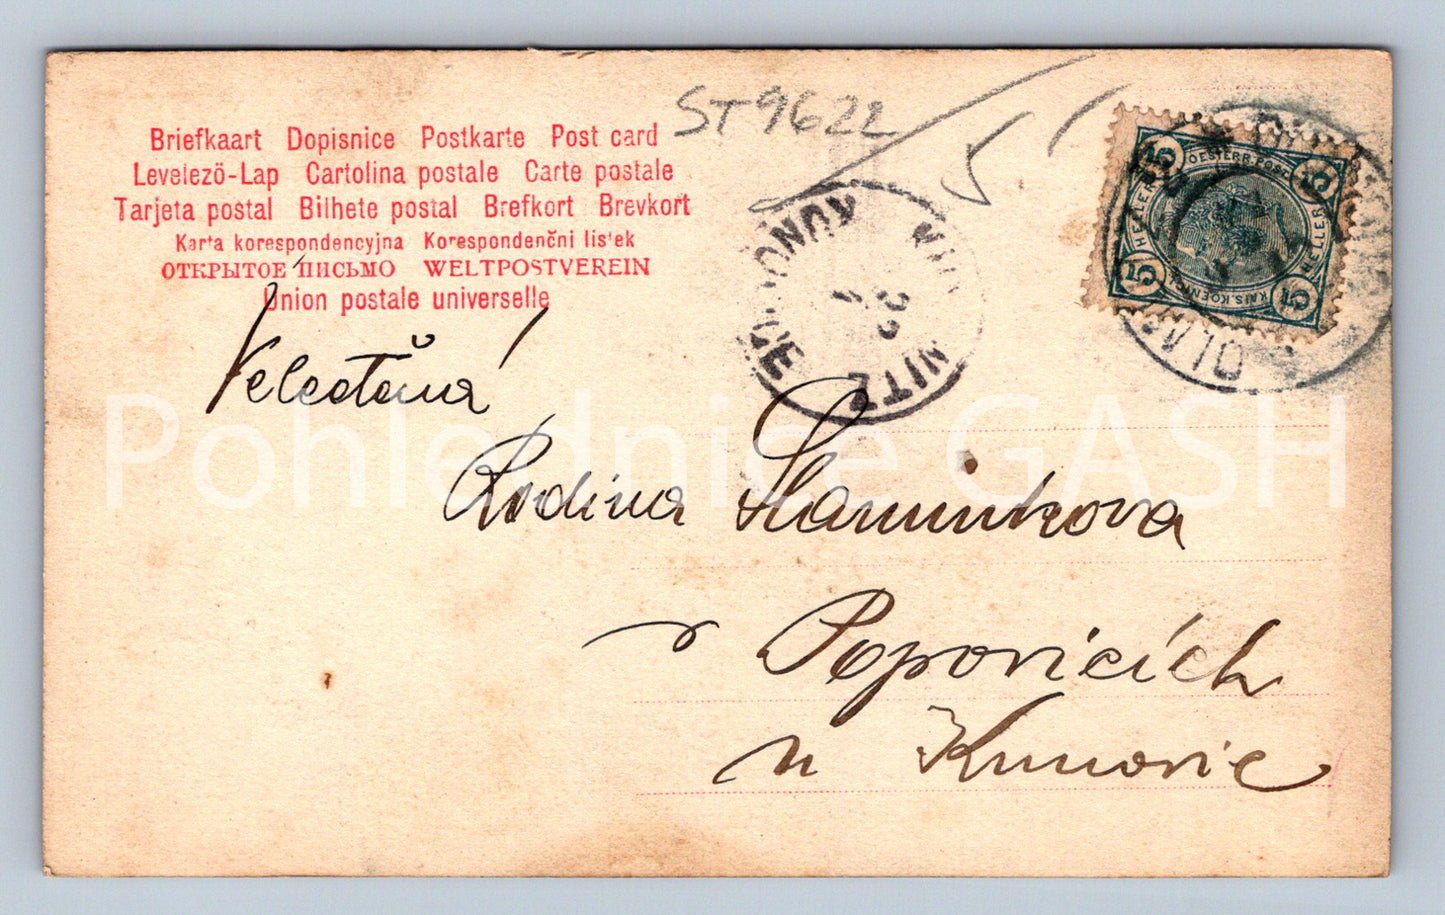 ST9622
5.
Briefkaart Dopisnice Postkarte Post card
Levelező-Lap Cartolina postale Carte postale
Tarjeta postal Bilhete postal Brefkort Brevkort
Karta korespondencyjna Korespondenční lístek
ОТКРЫТОЕ ПИСЬМО WELTPOSTVEREIN
Union postale universelle
5 OESTERR. POST 5
HELLER HELLER
5 KAIS. KOEN 5
KUNO
22
1
NITZ
Velectěná
Rodina
v Popovicích
u Kunovic
Pohlednice GASH